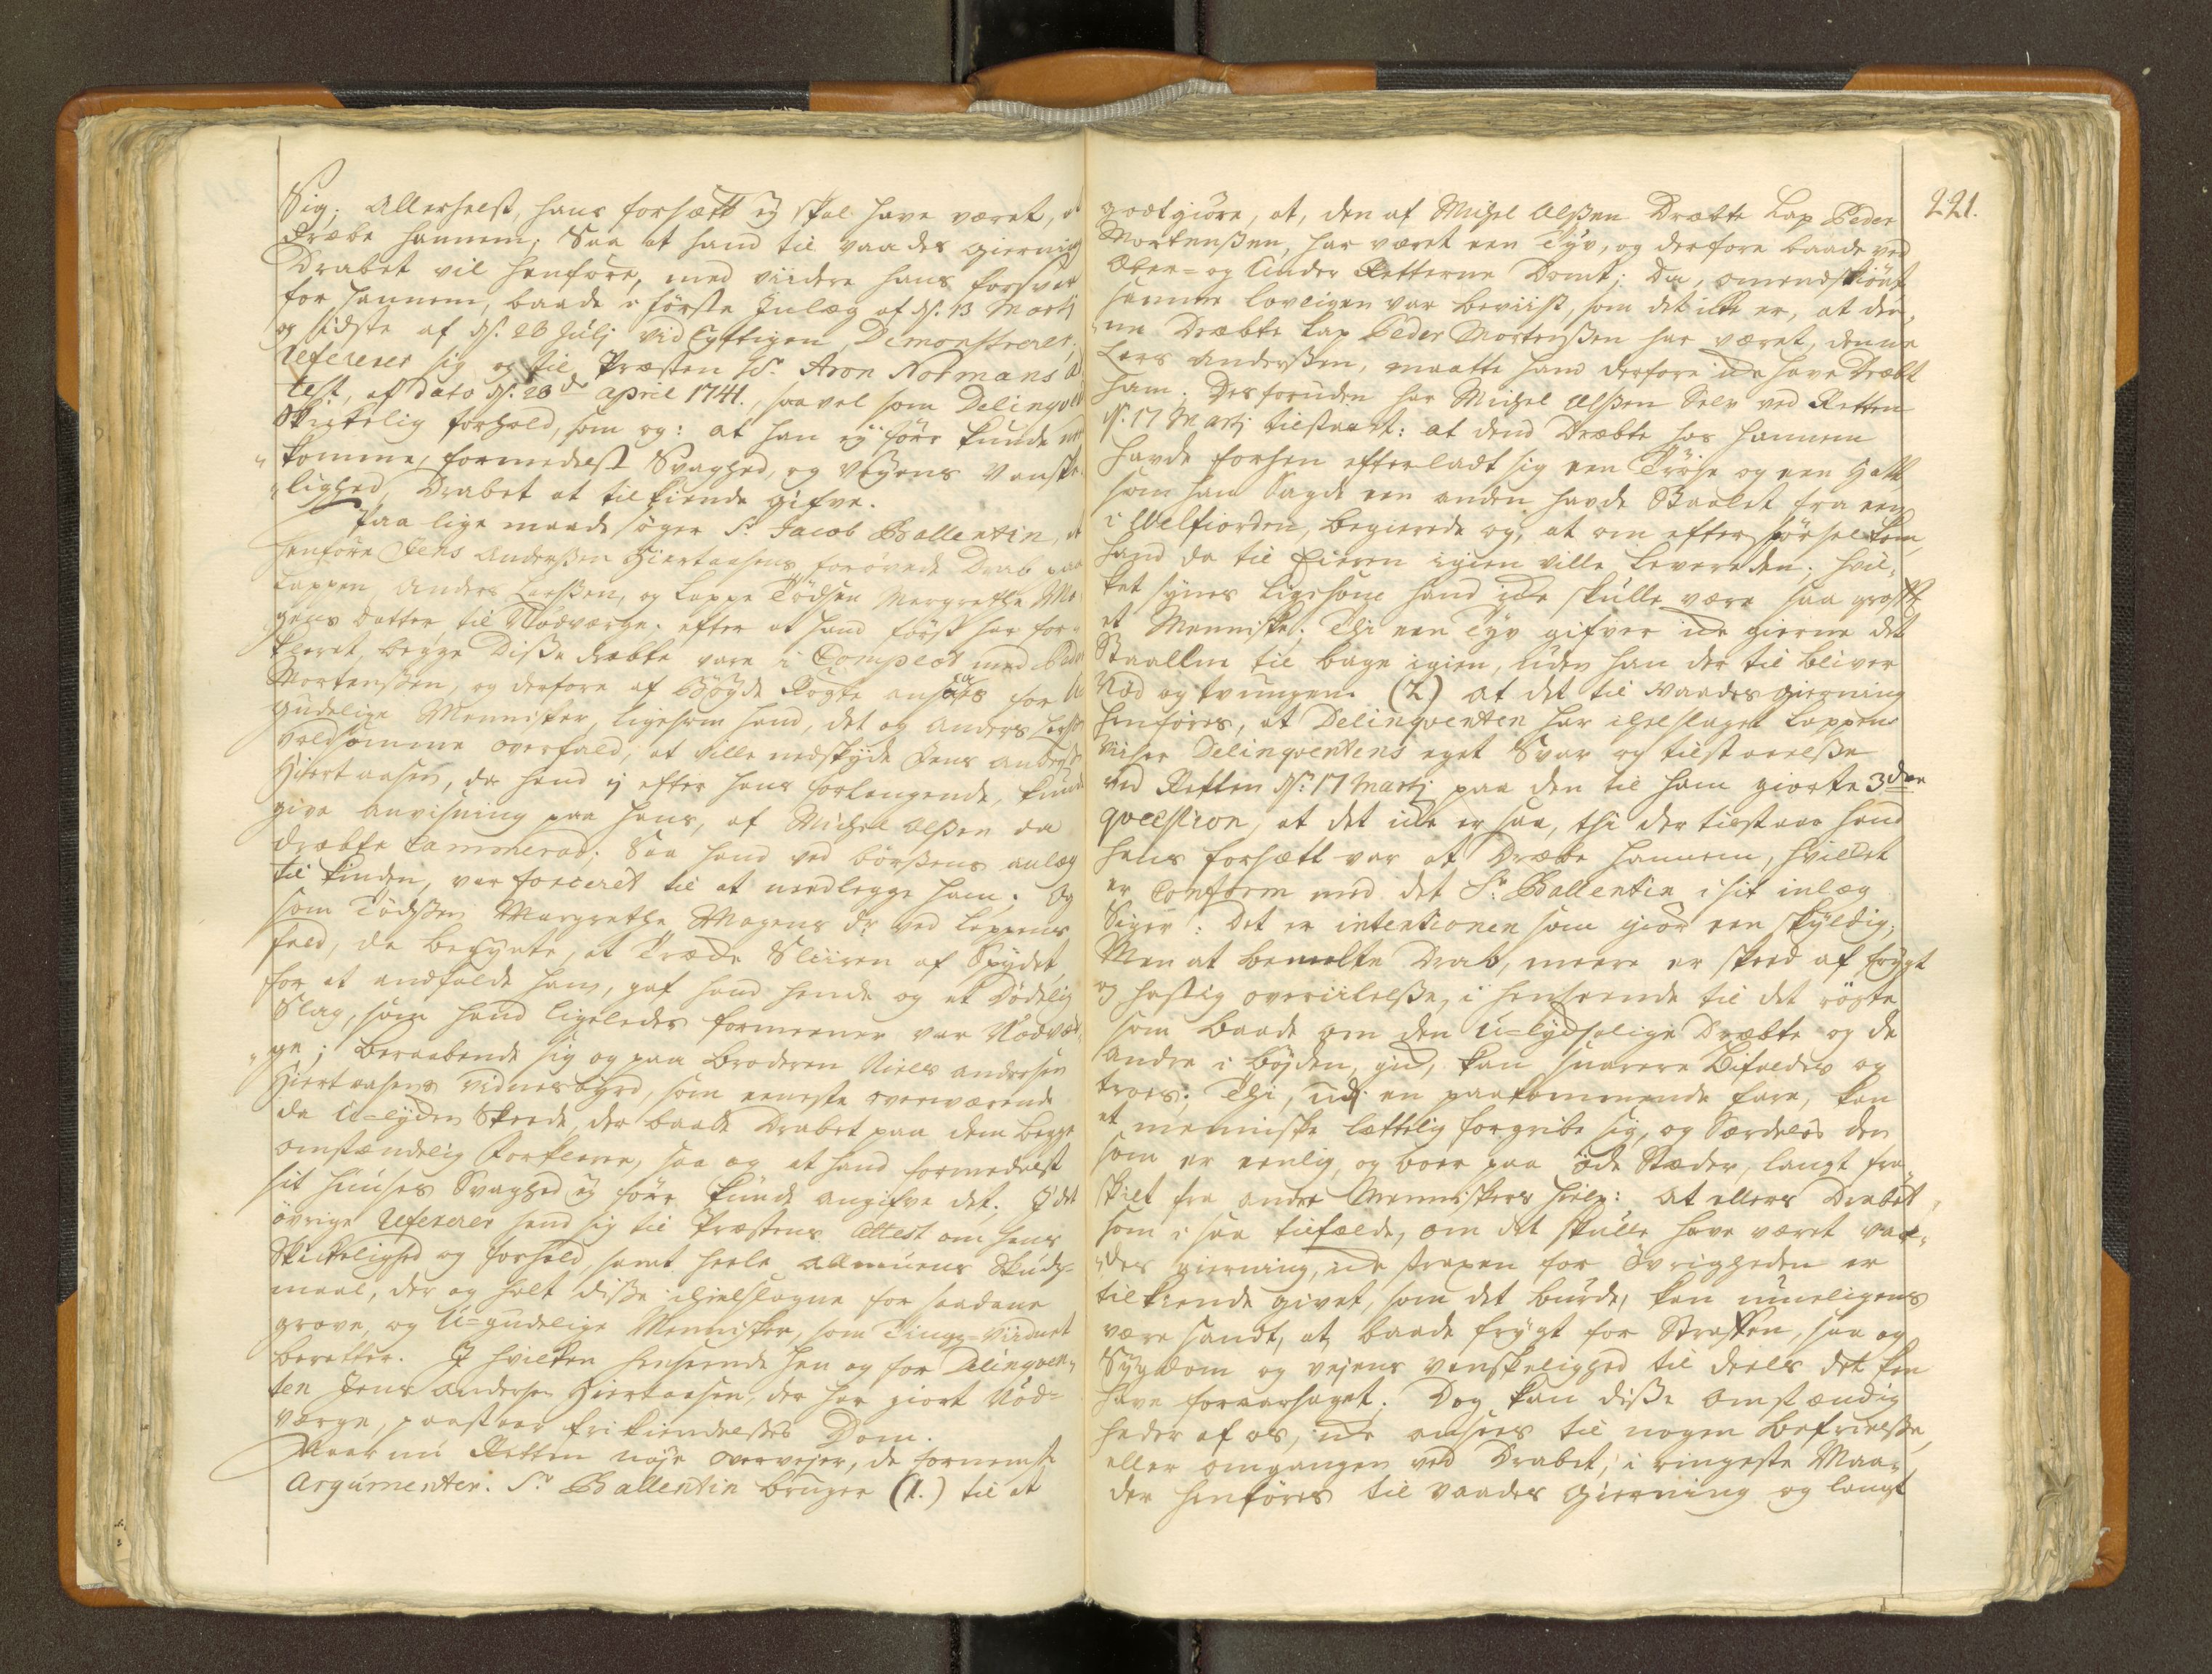 Sig; Allerhelst, hans forsætt ej skal have været, at
dræbe hannem; Saa at hand til vaades gierning
Drabet vil henføre, med viidere hans forsvar
for hannem, baade i første Inlæg af ds. 13 Martj
og sidste af ds. 28 Julj vidtløftigen Demonstrerer;
Refererer sig og til Præsten Hr. Aron Normans At
test, af dato ds. 28de April 1741., saavel som Delinqven
Skikkelig forhold, som og: at han ej førr kunde
komme, formedelst Svaghed, og Vejens Vanske-
lighed, Drabet at tilkiende gifve.
Paa lige maade søger Sr. Jacob Ballentin, at
henføre Jens Anderssen Hiertaasens forøvede Drab paa
Lappen, Anders Larssen, og Lappe Tødsen Margrethe Mo-
gens datter til Nødværge. efter at hand først har for-
klaret, begge Disse dræbte vare i Complot med Peder
Mortenssen, og derfore af Bøyde Rogte ansaaes for U-
gudelige Mennisker, ligesom hand, det og Anders Larssen
voldsomme overfald, at ville nedskyde Jens Anderssen
Hiertaasen, da hand ej efter hans forlangende, kunde
give anvisning paa hans, af Michel Olssen da
dræbte Cammerad; Saa hand ved bøssens anlæg
til kinden, var forceret til at needlegge ham; Og
som Tødssen Margrethe Mogens Dr. ved Lappens
fald, da begynte, at træde Sliiren af Spydet
for at anfalde ham, gaf hand hende og et Dødelig
Slag, som hand ligeledes formeener var Nødvær-
ge; beraabende sig og paa Broderen Niels Andersen
Hiertaasens vidnesbyrd, som eeneste overværende
da U-lyden Skeede, der baade Drabet paa dem begge
omstændelig Forklarer, saa og at hand formedelst
sit huuses Svaghed ej førr kunde angifve det; I det
øvrige Refererer hand sig til Præstens Attest om hans
Skikkelighed og forhold, samt heele Allmuens Skuds-
maal, der og holt disse ihielslagne for saadane
grove, og U-gudelige Mennisker, som Tings-Vidnet
beretter. I hvilken henseende han og for Delinqven-
ten Jens Andersen Hiertaasen, der har giort Nød-
værge, paastaar frikiendelses Dom.
Naar nu Retten nøje overvejer, de fornemste
Argumenter. Sr. Ballentin bruger (1.) til at
221.
godtgiøre, at, den af Michel Olssen Dræbte Lap Peder
Mortenssen, har været een Tyv, og derfore baade ved
Ober- og Under Retterne Dømt; Da, omendskiønt
samme lovligen var beviist, som det ikke er, at den-
ne Dræbte Lap Peder Mortenssen har været, denne
Lars Anderssen, maatte hand derfore icke have Dræbt
ham. Desforuden har Michel Olssen Selv ved Retten
ds. 17 Martj tilstaaet: at dend Dræbte hos hannem
havde forhen efterladt sig een Trøje og een Hatt
som han Sagde een anden havde Staalet fra een
i Velfiorden, begierede og, at om efterspørsel kom,
hand da til Eieren igien ville Levere den; hvil-
ket synes ligesom hand icke skulle være saa groft
et Menniske; Thi een Tyv gifver icke gierne det
Staalne til bage igien, uden han der til bliver
Nød og tvungen. (2) at det til Vaades gierning
henføres, at Delinqventen har ihielslaget Lappen
viiser Delinqventens eget Svar og tilstaaelsse
ved Retten ds. 17 Martj paa den til ham giorte 3die
qvæstion, at det icke er saa, thi der tilstaar hand
hans forsætt var at Dræbe hannem, hvilket
er Conform med det Sr. Ballentin i sit inlæg
Siger: Det er intentionen som giør een skyldig,
Men at bemelte Drab, meere er skeed af frygt
og hastig overiilelsse, i henseende til det rögte
som baade om den U-lydsalige Dræbte og de
andre i bøyden, gik, kan snarere Bifaldes og
troes; Thi, udj en paakommende fare, kan
et menniske lættelig forgribe sig, og Særdeles den
som er eenlig, og boer paa øde Stæder, langt fra-
skilt fra andre Menniskers hielp: At ellers Drabet
som i saa tilfælde, om det skulle have været vaa-
des gierning, icke straxen for Øvrigheden er
tilkiende givet, som det burde, kan mueligens
være sandt, at, baade frygt for Straffen, saa og
Sygdom og vejens vanskelighed til deels det kan
have foraarsaget; Dog kan disse omstændig
heder af os, icke ansees til nogen befrielsse,
eller omgangen ved Drabet, i ringeste Maa-
der henføres til vaades gierning og langt